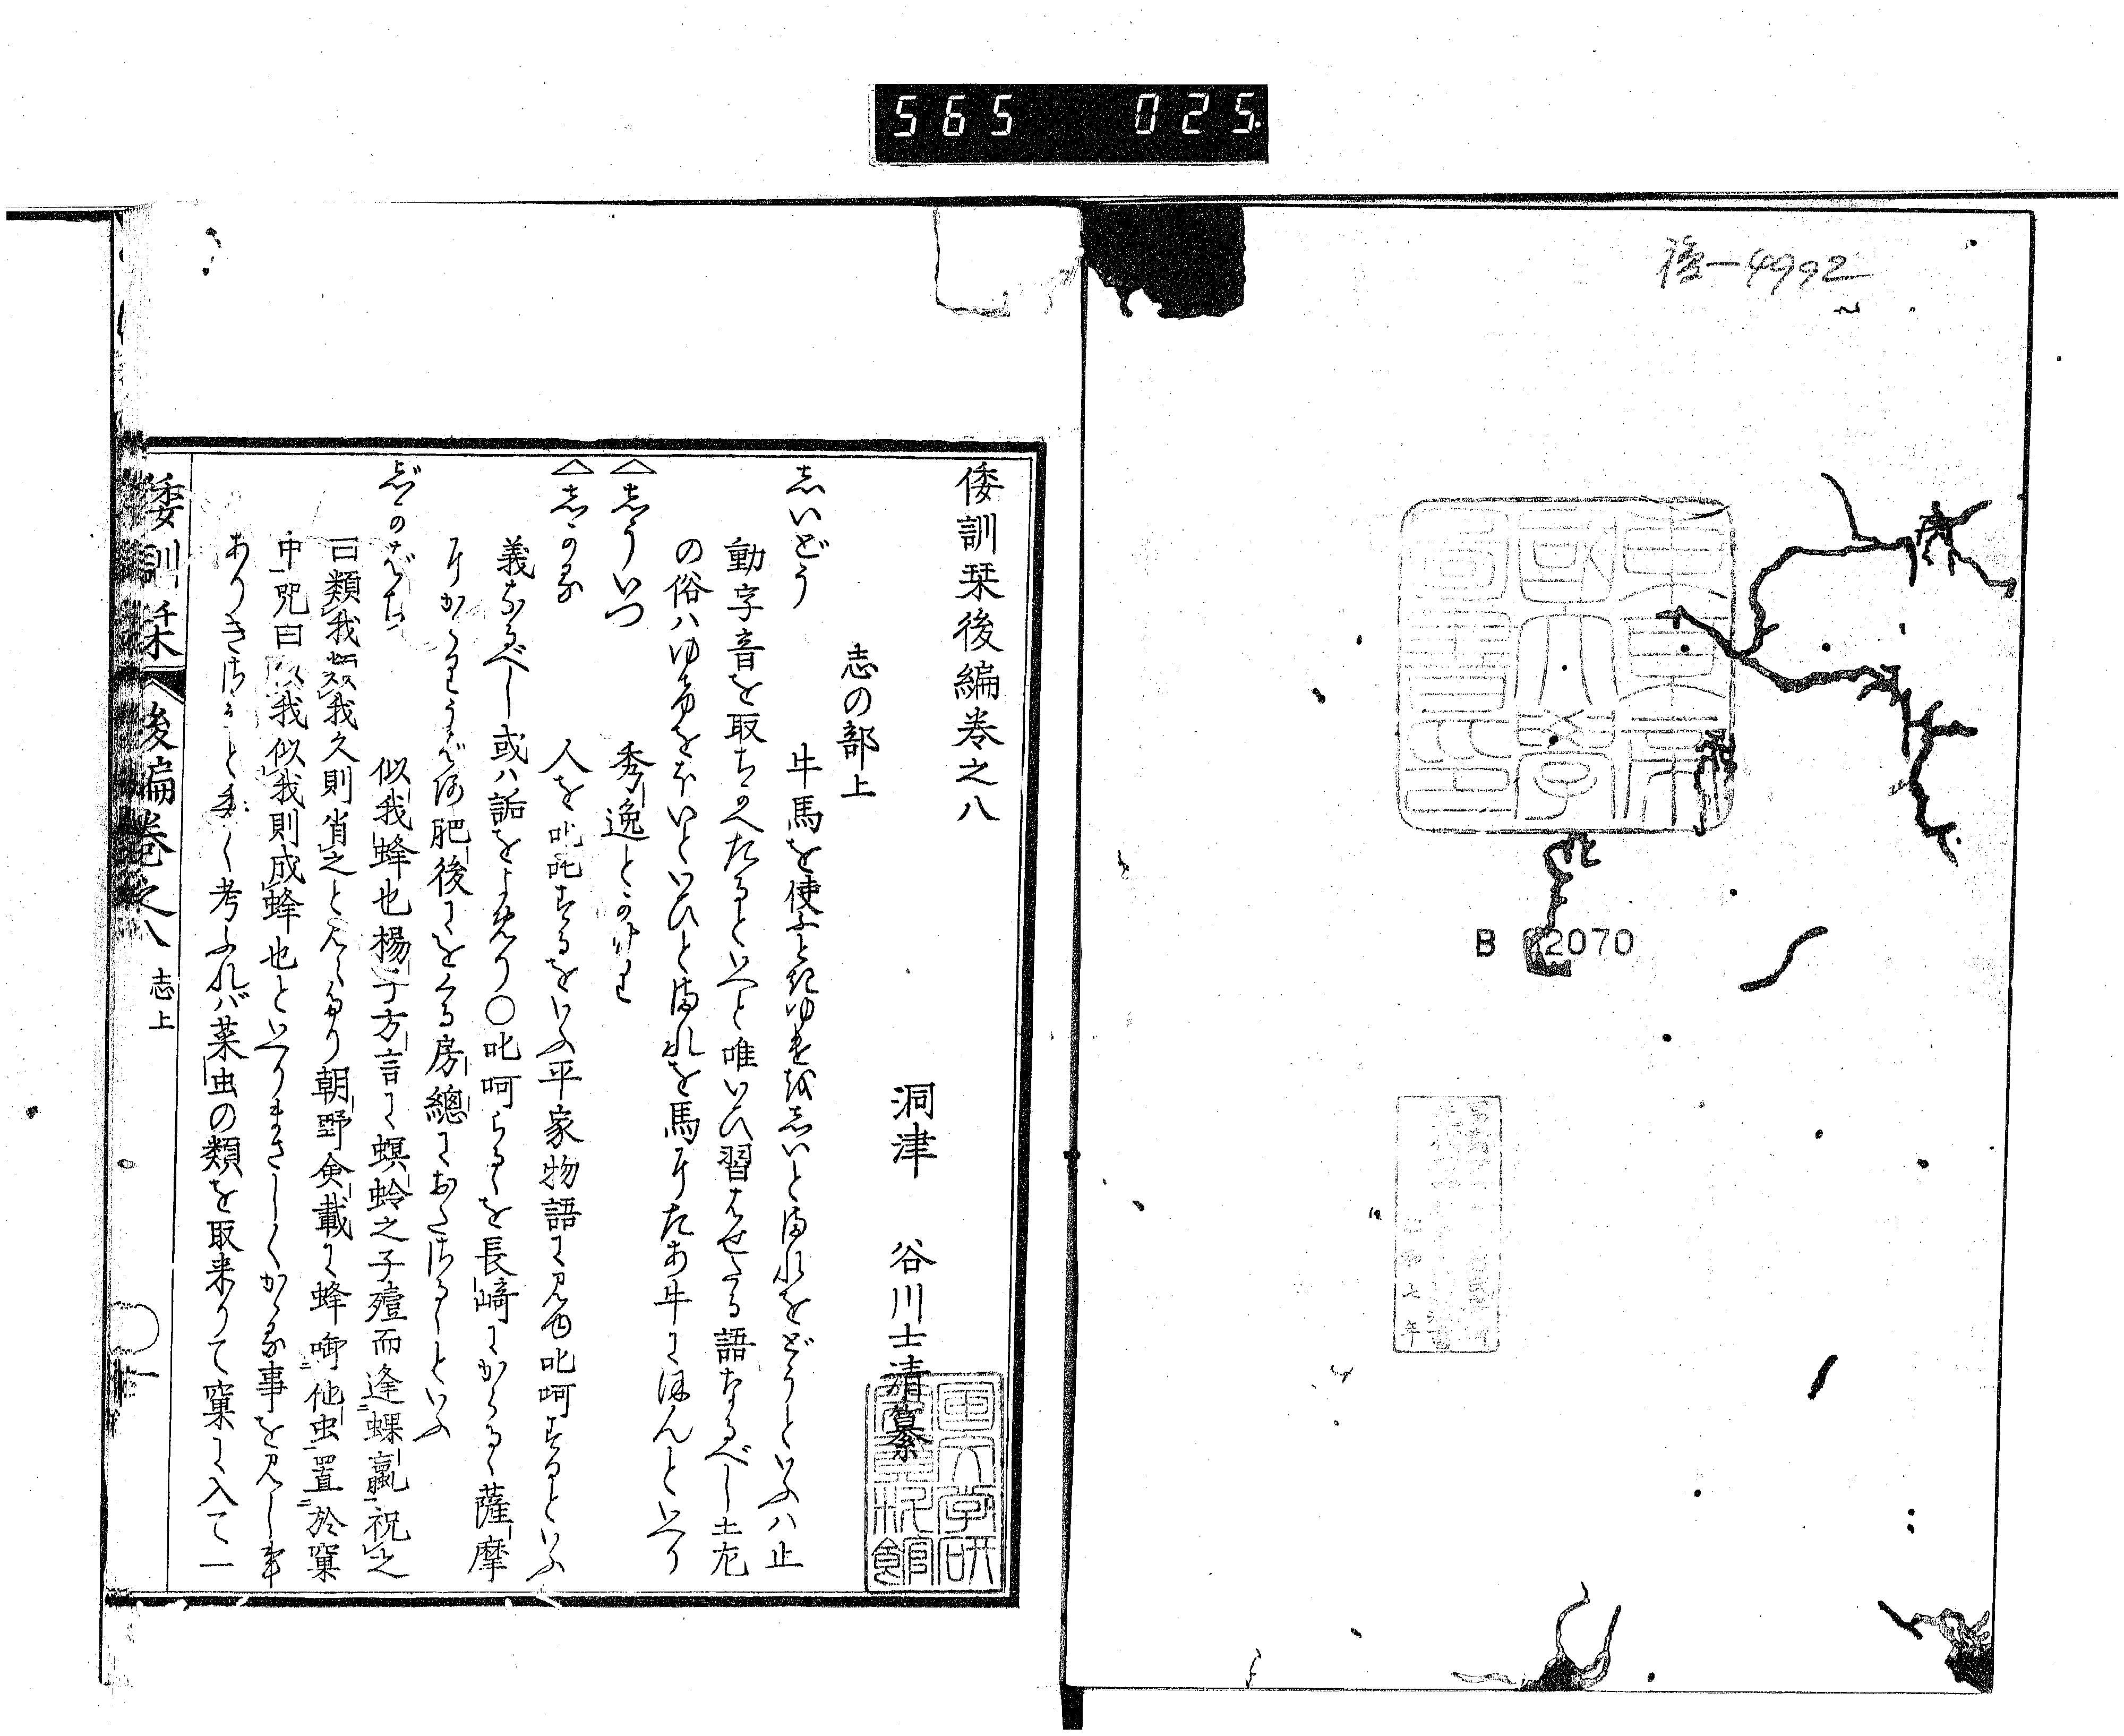 565 025.
後-4992
東京帝國大學圖書印
B 62070
昭和七年
倭訓栞後編巻之八
洞津 谷川士清纂
志の部上
志いどう 牛馬を使ふときゆきを志いと満れをどうといふハ止
動字音を取ちかへたるといへと唯いひ習はせたる語なるべし土左
の俗ハゆきをほいといひと満れを馬にたあ牛にほんといへり
△志ういつ 秀逸とかけり
△志かる 人を叱咤するをいふ平家物語に見ゆ叱呵するといふ
義なるべし或ハ詬をよめり〇叱呵らるゝを長崎にかるゝ薩摩
肥後に房總に といふ
志゛かばち 似我蜂也楊子方言に螟蛉之子殪而逢蜾蠃祝之
曰類我類我久則肖之と見えたり朝野僉載に蜂啣他虫置於窠
中咒曰似我似我則成蜂也といへりまさしくかゝる事を見し事
ありき考ふれバ菜虫の類を取来りて窠に入て一
倭訓栞 後編巻之八 志上
國文学研究資料館